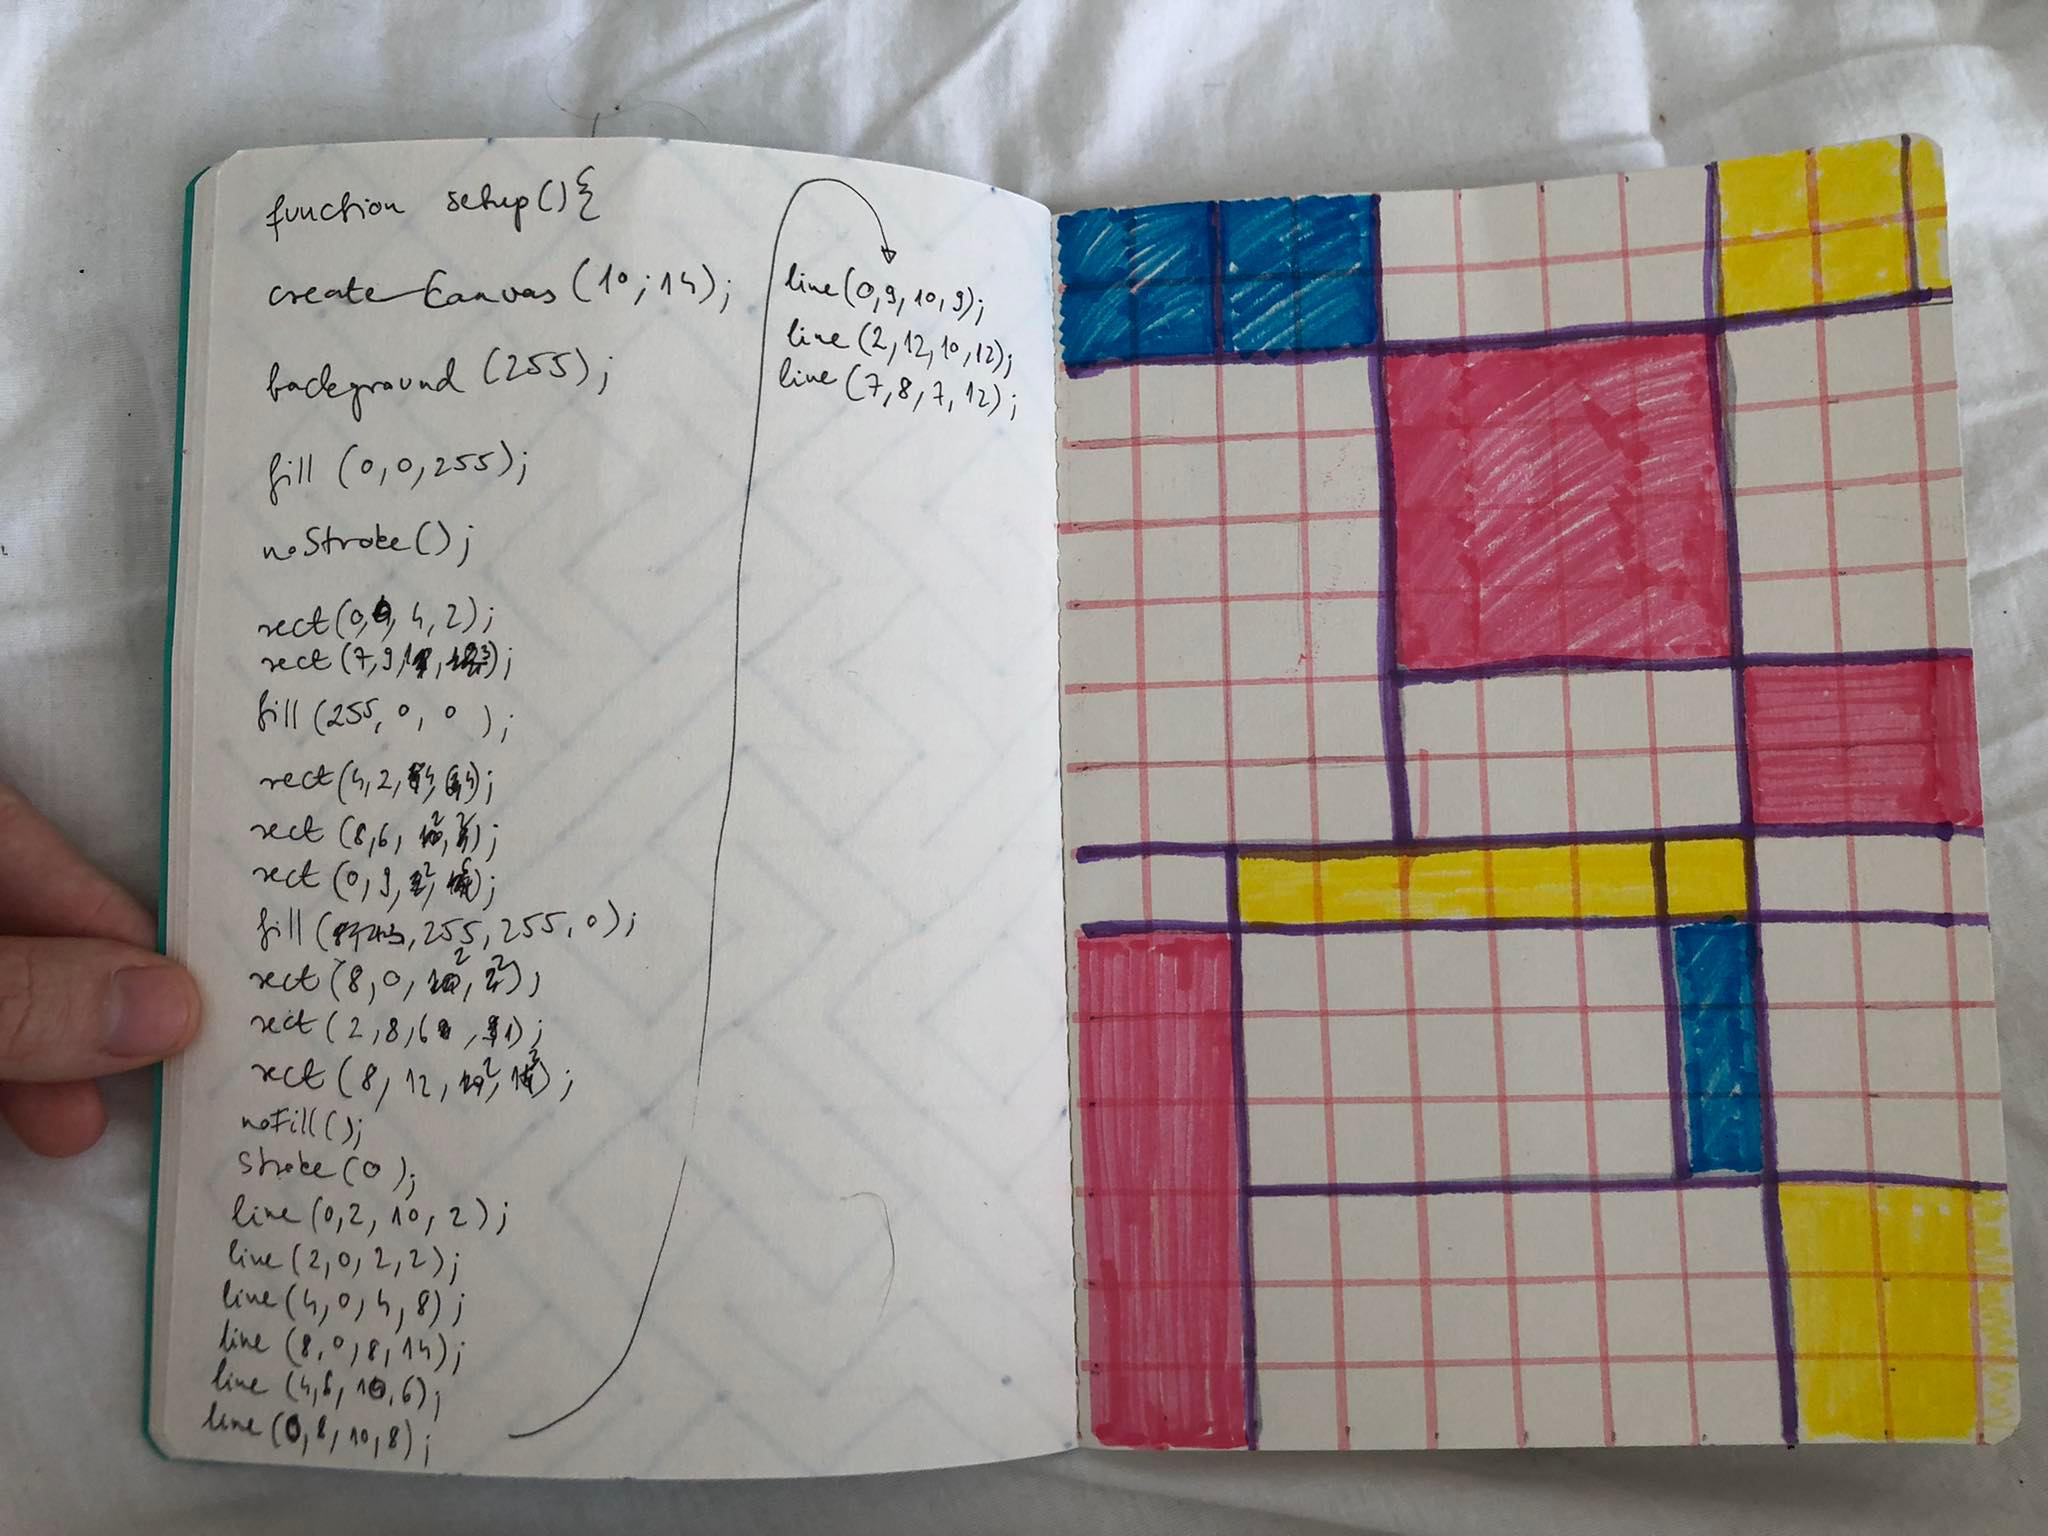 function setup(){
createCanvas(10;14);
background(255);
fill (0,0,255);
noStroke();
rect(0,0,4,2);
rect(7,9,1,3);
fill(255,0,0);
rect(4,2,4,4);
rect(8,6,2,2);
rect(0,9,2,
fill(255,255,0);
rect(8,0,2,2);
rect(2,8,6,1);
rect(8,12,2,2);
noFill();
stroke(0);
line(0,2,10,2);
line(2,0,2,2);
line(4,0,4,8);
line(8,0,8,14);
line(4,6,10,6);
line(0,8,10,8);
line(0,9,10,9);
line(2,12,10,12);
line(7,8,7,12);